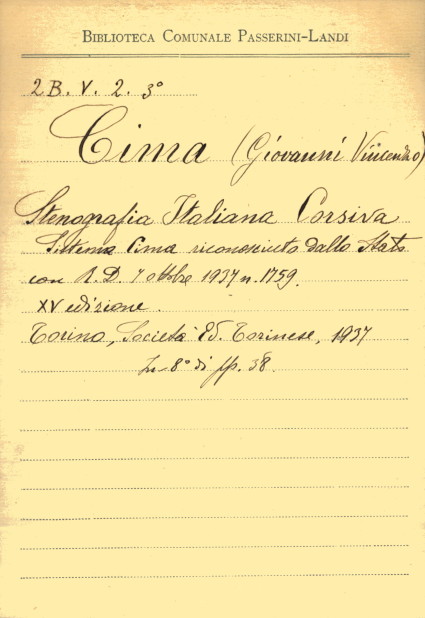 BIBLIOTECA COMUNALE PASSERINI-LANDI
2 B. V. 2. 3°
Cima (Giovanni Vincenzo)
Stenografia Italiana Corsiva
Sistema Cima riconosciuto dallo Stato
con R. D. 7 ottobre 1937 n. 1759.
XV edizione.
Torino, Società Ed. Torinese, 1937
In-8° di pp. 38.